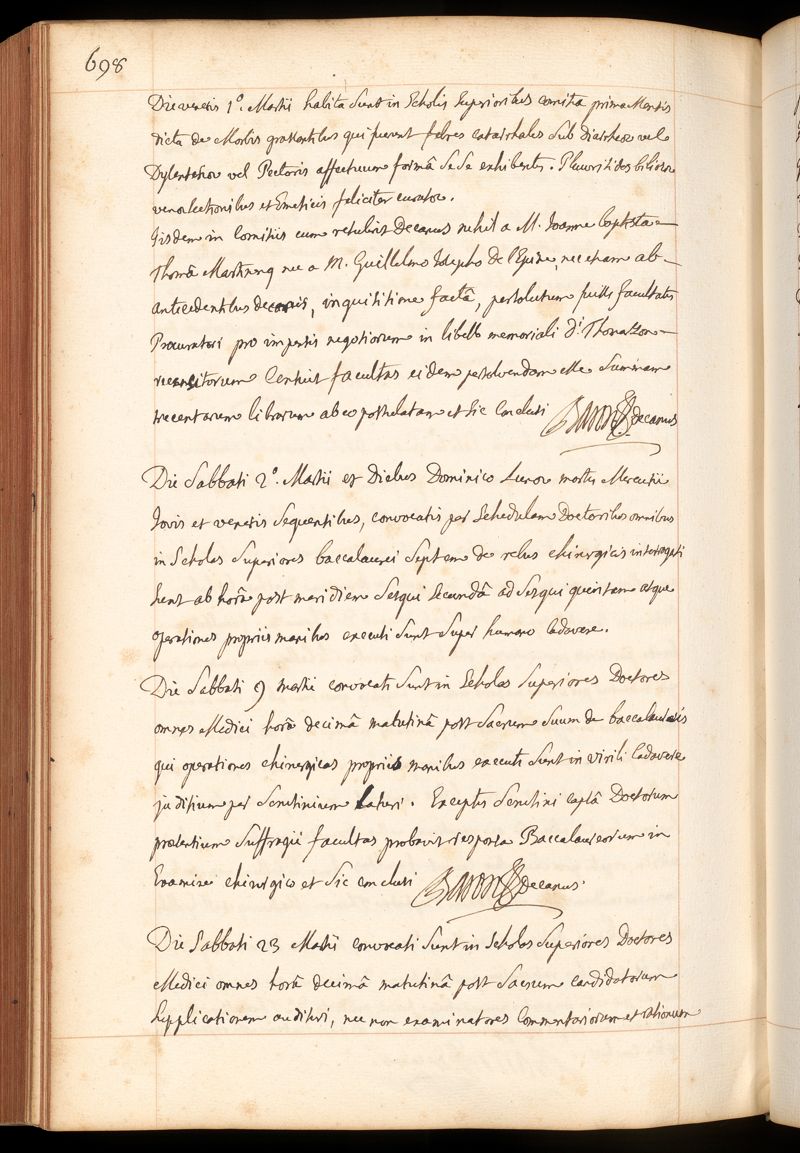 698
Die veneris 1º. Martii habita sunt in Scholis Superioribus comitia prima Mensis
dicta de Morbis grassantibus qui fuerunt febres catarrhales sub diarrheae vel
Dysenteriae vel Pectoris affectuum formâ sese exhibentes. Pleuritides biliosae
venaesectionibus et Emeticis feliciter curatae.
Iisdem in Comitiis cum retulerit Decanus nihil a M. Joanne baptista
Thomâ Martinenq nec a M. Guillelmo Josepho De l'Epine, nec etiam ab
antecedentibus decanis, inquisitione factâ, persolutum fuisse facultatis
Procuratori pro impensis negotiorum in libello memoriali Di Thomazon
recensitorum Censuit facultas eidem persolvendam esse Summam
trecentarum librarum ab eo postulatam et sic conclusi Baron decanus
Die Sabbati 2º. Martii et Diebus Dominico Lunae martis Mercurii
Jovis et veneris sequentibus, convocatis per Schedulam Doctoribus omnibus
in Scholas Superiores baccalaurei septem de rebus chirurgicis interrogati
sunt ab horâ post meridiem sesqui secundâ ad sesqui quintam atque
operationes propriis manibus executi sunt super humano Cadavere.
Die Sabbati 9 martii convocati sunt in Scholas Superiores Doctores
omnes Medici horâ decimâ matutinâ post Sacrum suum de baccalaureis
qui operationes chirurgicas propriis manibus executi sunt in virili Cadavere
juditium per Scrutinium laturi. Exceptis Scrutini captâ Doctorum
praesentium Suffragii facultas probavit responsa Baccalaureorum in
Examine chirurgico et sic conclusi Baron decanus.
Die Sabbati 23 Martii convocati sunt in Scholas Superiores Doctores
Medici omnes horâ decimâ matutinâ post Sacrum candidatorum
Supplicationem audituri, nec non examinatores Commentariorum et rationum